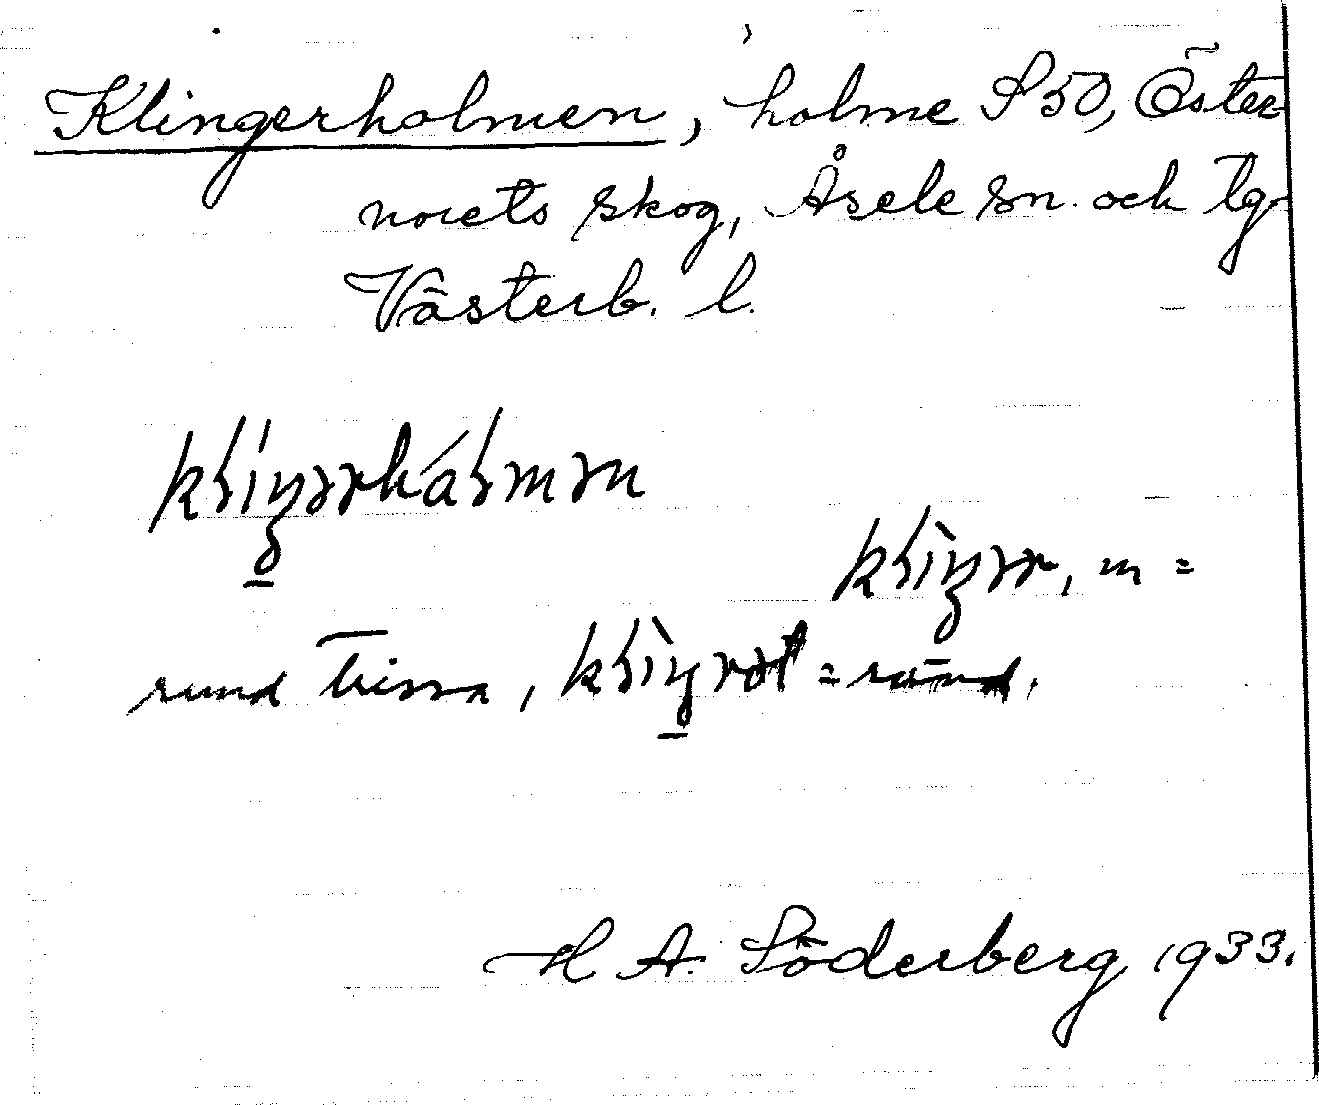 Klingerholmen, holme S 50, Öster-
norets skog, Åsele sn. och lg
Västerb. l.
klíŋərhálmən
klìŋər, m =
rund trissa, klìŋrət = rund.
H A. Söderberg 1933.